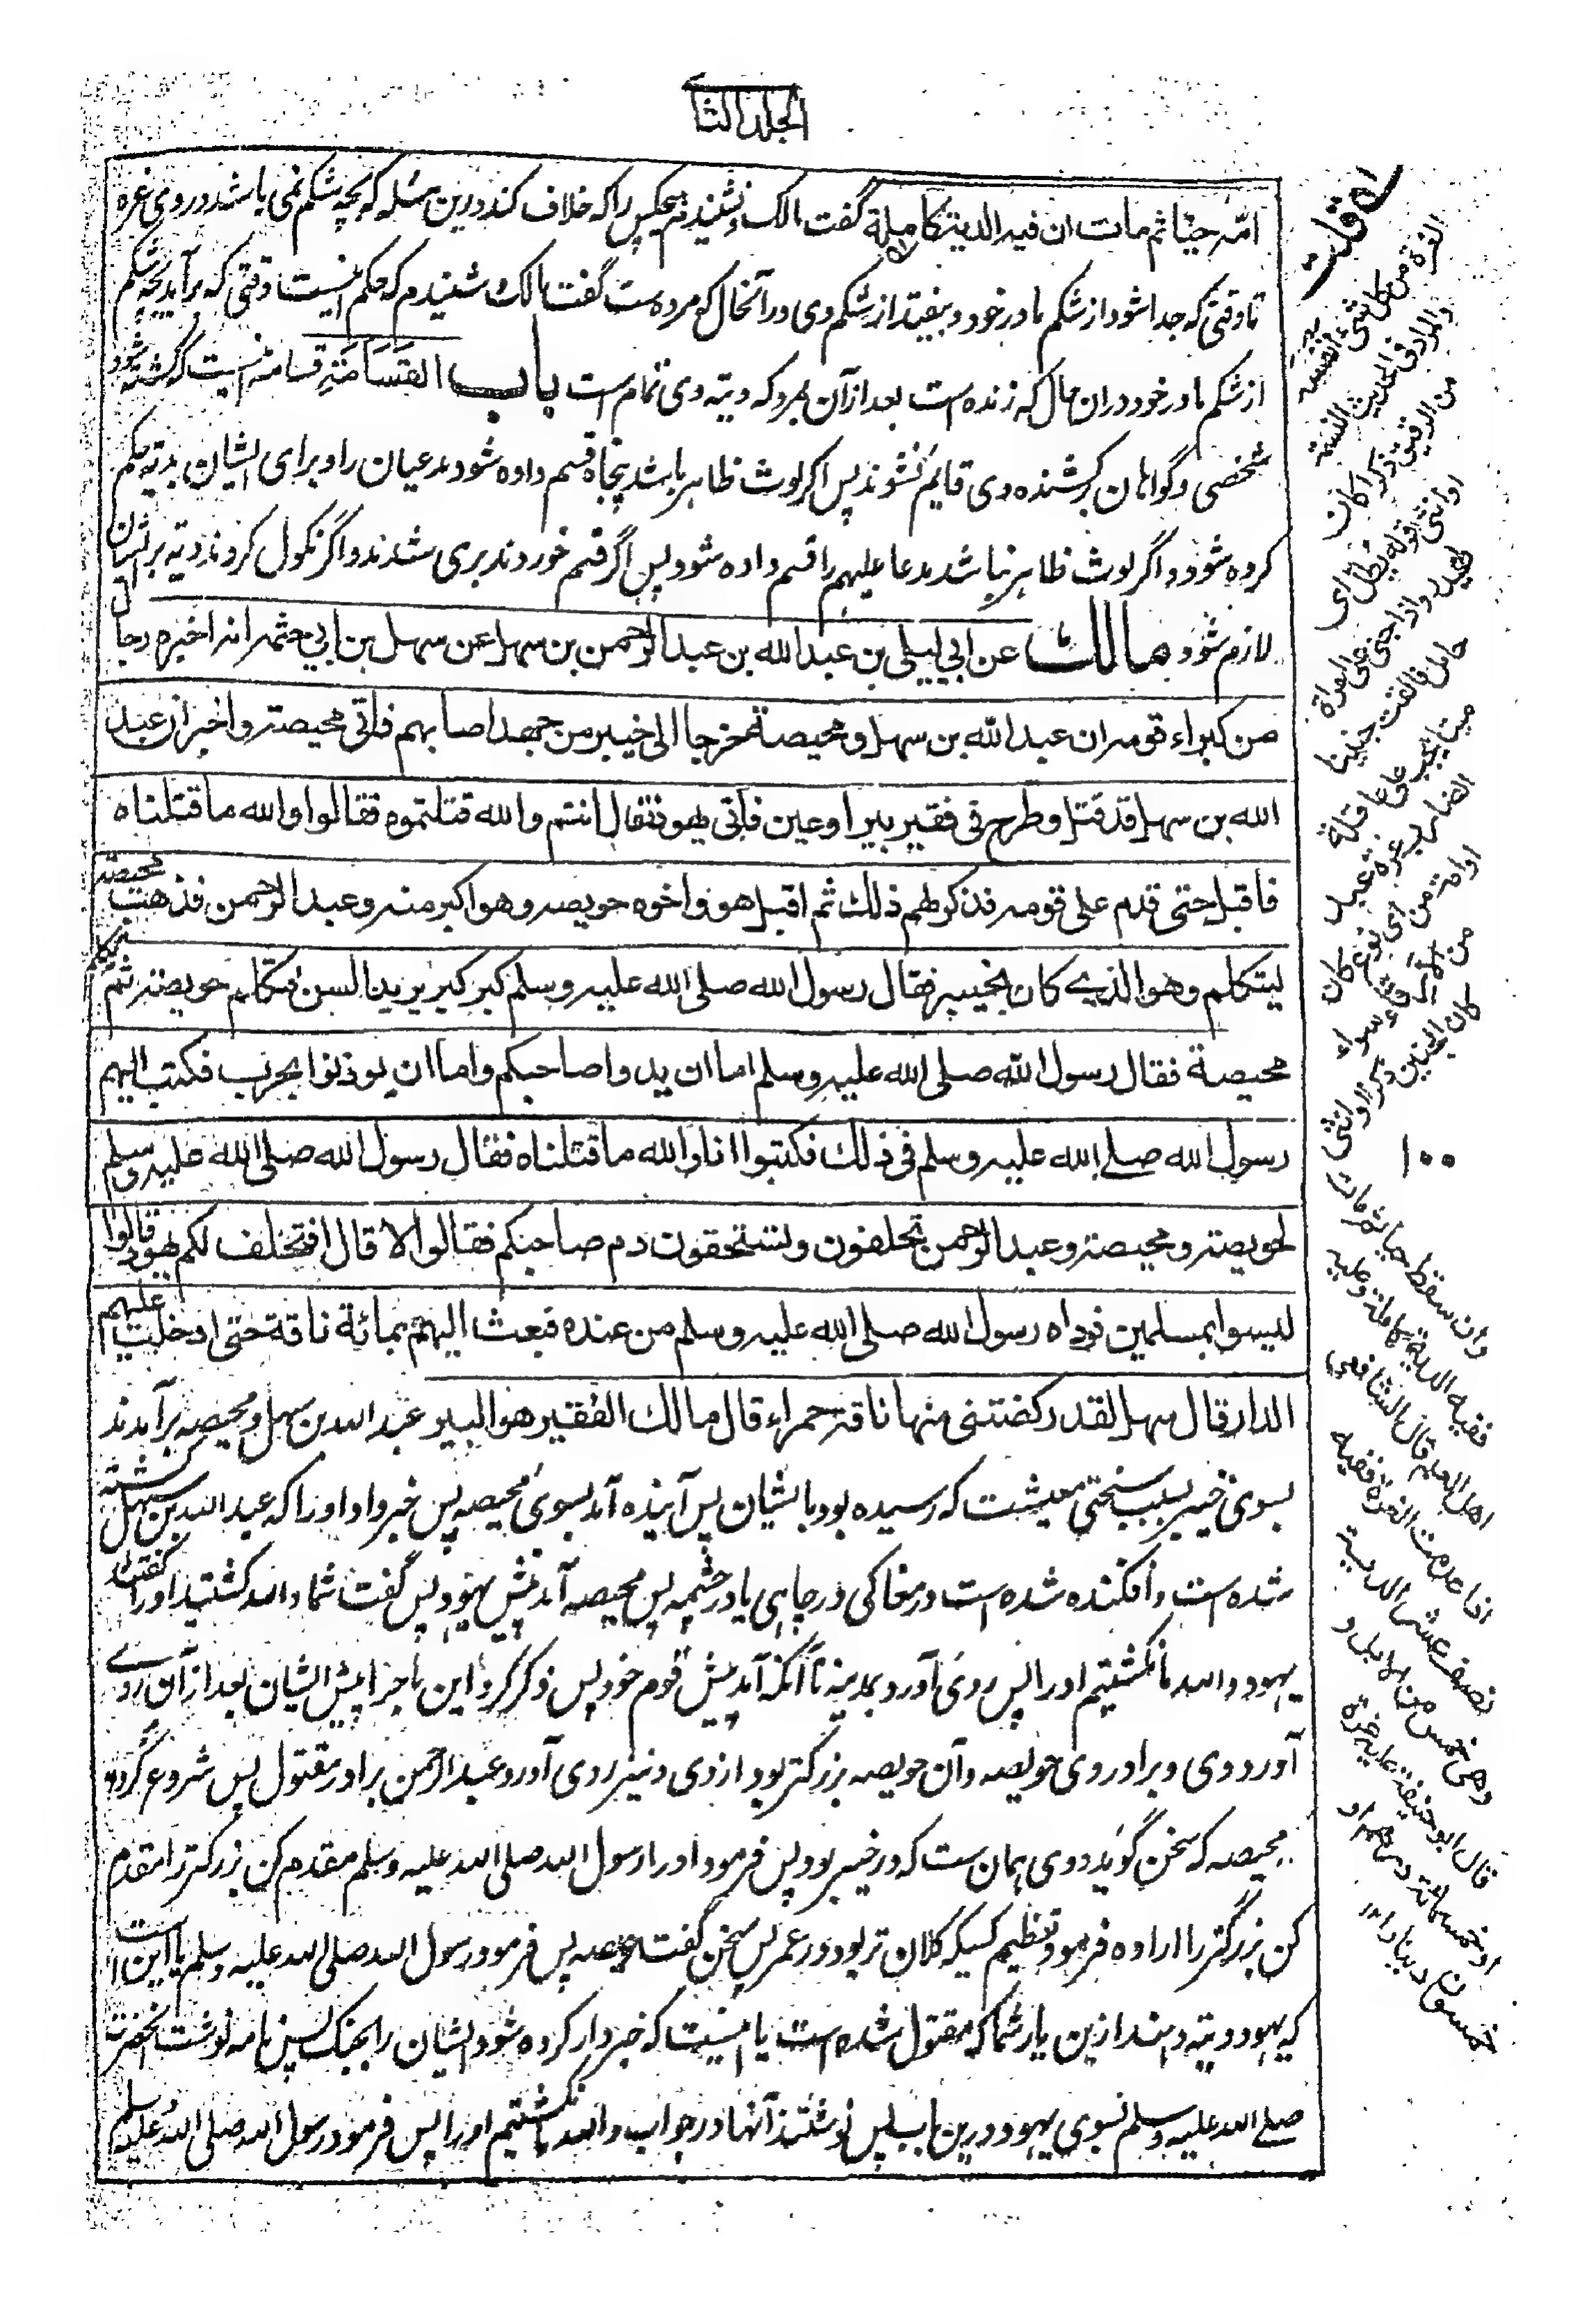 الجلد الثانی
امه حیا ثم مات ان فیه الدیة کاملة گفت مالک و نشنیدم هیچکس را که خلاف کند درین مسئله که بچه شکم نمی باشد در وی غره
تا وقتی که جدا شود از شکم مادر خود و بیفتد از شکم وی در آنحال که مرده ست گفت مالک شنیدم که حکم اینست وقتی که برآید بچه شکم
از شکم مادر خود در ان حال که زنده است بعد از آن بمرد که دیة وی تمام است باب القسامة قسامة اینست که کشته شود
شخصی و گواهان بر کشنده وی قایم نشوند پس اگر لوث ظاهر باشد پنجاه قسم داده شود مدعیان را و برای ایشان بدیة حکم
کرده شود و اگر لوث ظاهر نباشد مدعا علیهم را قسم داده شود پس اگر قسم خوردند بری شدند و اگر نکول کردند دیة بر ایشان
لازم شود مالک عن ابی لیلی بن عبد الله بن عبد الرحمن بن سهل عن سهل بن ابی حثمه انه اخبره رجال
من کبراء قومه ان عبد الله بن سهل و محیصة خرجا الی خیبر من جهد اصابهم فاتی محیصة و اخبر ان عبد
الله بن سهل قد قتل و طرح فی فقیر بیر او عین فاتی یهود فقال انتم والله قتلتموه فقالوا والله ما قتلناه
فاقبل حتی قدم علی قومه فذکر لهم ذلک ثم اقبل هو واخوه حویصه وهو اکبر منه وعبد الرحمن فذهب محیصة
لیتکلم وهو الذی کان بخیبر فقال رسول الله صلی الله علیه وسلم کبر کبر یرید السن فتکلم حویصة ثم تکلم
محیصة فقال رسول الله صلی الله علیه وسلم اما ان یدوا صاحبکم واما ان یوذنوا بحرب فکتب الیهم
رسول الله صلی الله علیه وسلم فی ذلک فکتبوا انا والله ما قتلناه فقال رسول الله صلی الله علیه وسلم
لحویصة ومحیصة وعبد الرحمن تحلفون وتستحقون دم صاحبکم فقالوا لا قال افتحلف لکم یهود قالوا
لیسوا بمسلمین فوداه رسول الله صلی الله علیه وسلم من عنده فبعث الیهم بمائة ناقة حتی ادخلت علیهم
الدار قال سهل لقد رکضتنی منها ناقة حمراء قال مالک الفقیر هو البیر عبد الله بن سهل و محیصه برآمدند
بسوی خیبر بسبب سختی معیشت که رسیده بود بایشان پس آینده آمد بسوی محیصه پس خبر داد او را که عبد الله بن سهل کشته
شده است و افکنده شده است در مغاکی در چاهی یا در چشمه پس محیصه آمد پیش یهود پس گفت شما والله کشتید او را گفتند
یهود والله ما نکشتیم او را پس روی آورد بمدینه تا آنکه آمد پیش قوم خود پس ذکر کرد این ماجرا پیش ایشان بعد از آن روی
آورد وی و برادر وی حویصه و آن حویصه بزرگتر بود از وی و نیز روی آورد عبد الرحمن برادر مقتول پس شروع کرد
محیصه که سخن گوید و وی همان ست که در خیبر بود پس فرمود او را رسول الله صلی الله علیه وسلم مقدم کن بزرگتر را مقدم
کن بزرگتر را اراده فرمود تعظیم کسیکه کلان تر بود در عمر پس سخن گفت حویصه پس فرمود رسول الله صلی الله علیه وسلم یا این است
که یهود دیة دهند ازین یار شما که مقتول شده است یا اینست که خبردار کرده شود ایشان را بجنگ پس نامه نوشت آنحضرت
صلی الله علیه وسلم بسوی یهود درین باب پس نوشتند آنها در جواب والله ما نکشتیم او را پس فرمود رسول الله صلی الله علیه وسلم
قلت
الغرة من کل شئ انفسه
والمراد فی الحدیث النسمة
من الرقیق ذکرا کان
او انثی قوله بطل ای
یهدر واذا جنی علی امرأة
حامل فالقت جنینا
میتا یجب علی عاقلة
الضارب غرة عبد
او امة من ای نوع کان
من الارقاء سواء
کان الجنین ذکر او انثی
۱۰۰
وان سقط حیا ثم مات
ففیه الدیة کاملة وعلیه
اهل العلم قال الشافعی
اذا عدمت الغرة ففیه
نصف عشر الدیة
وهی خمس من الابل و
قال ابو حنیفة علیه غرة
او خمسمائة درهم او
خمسون دینارا ۱۲